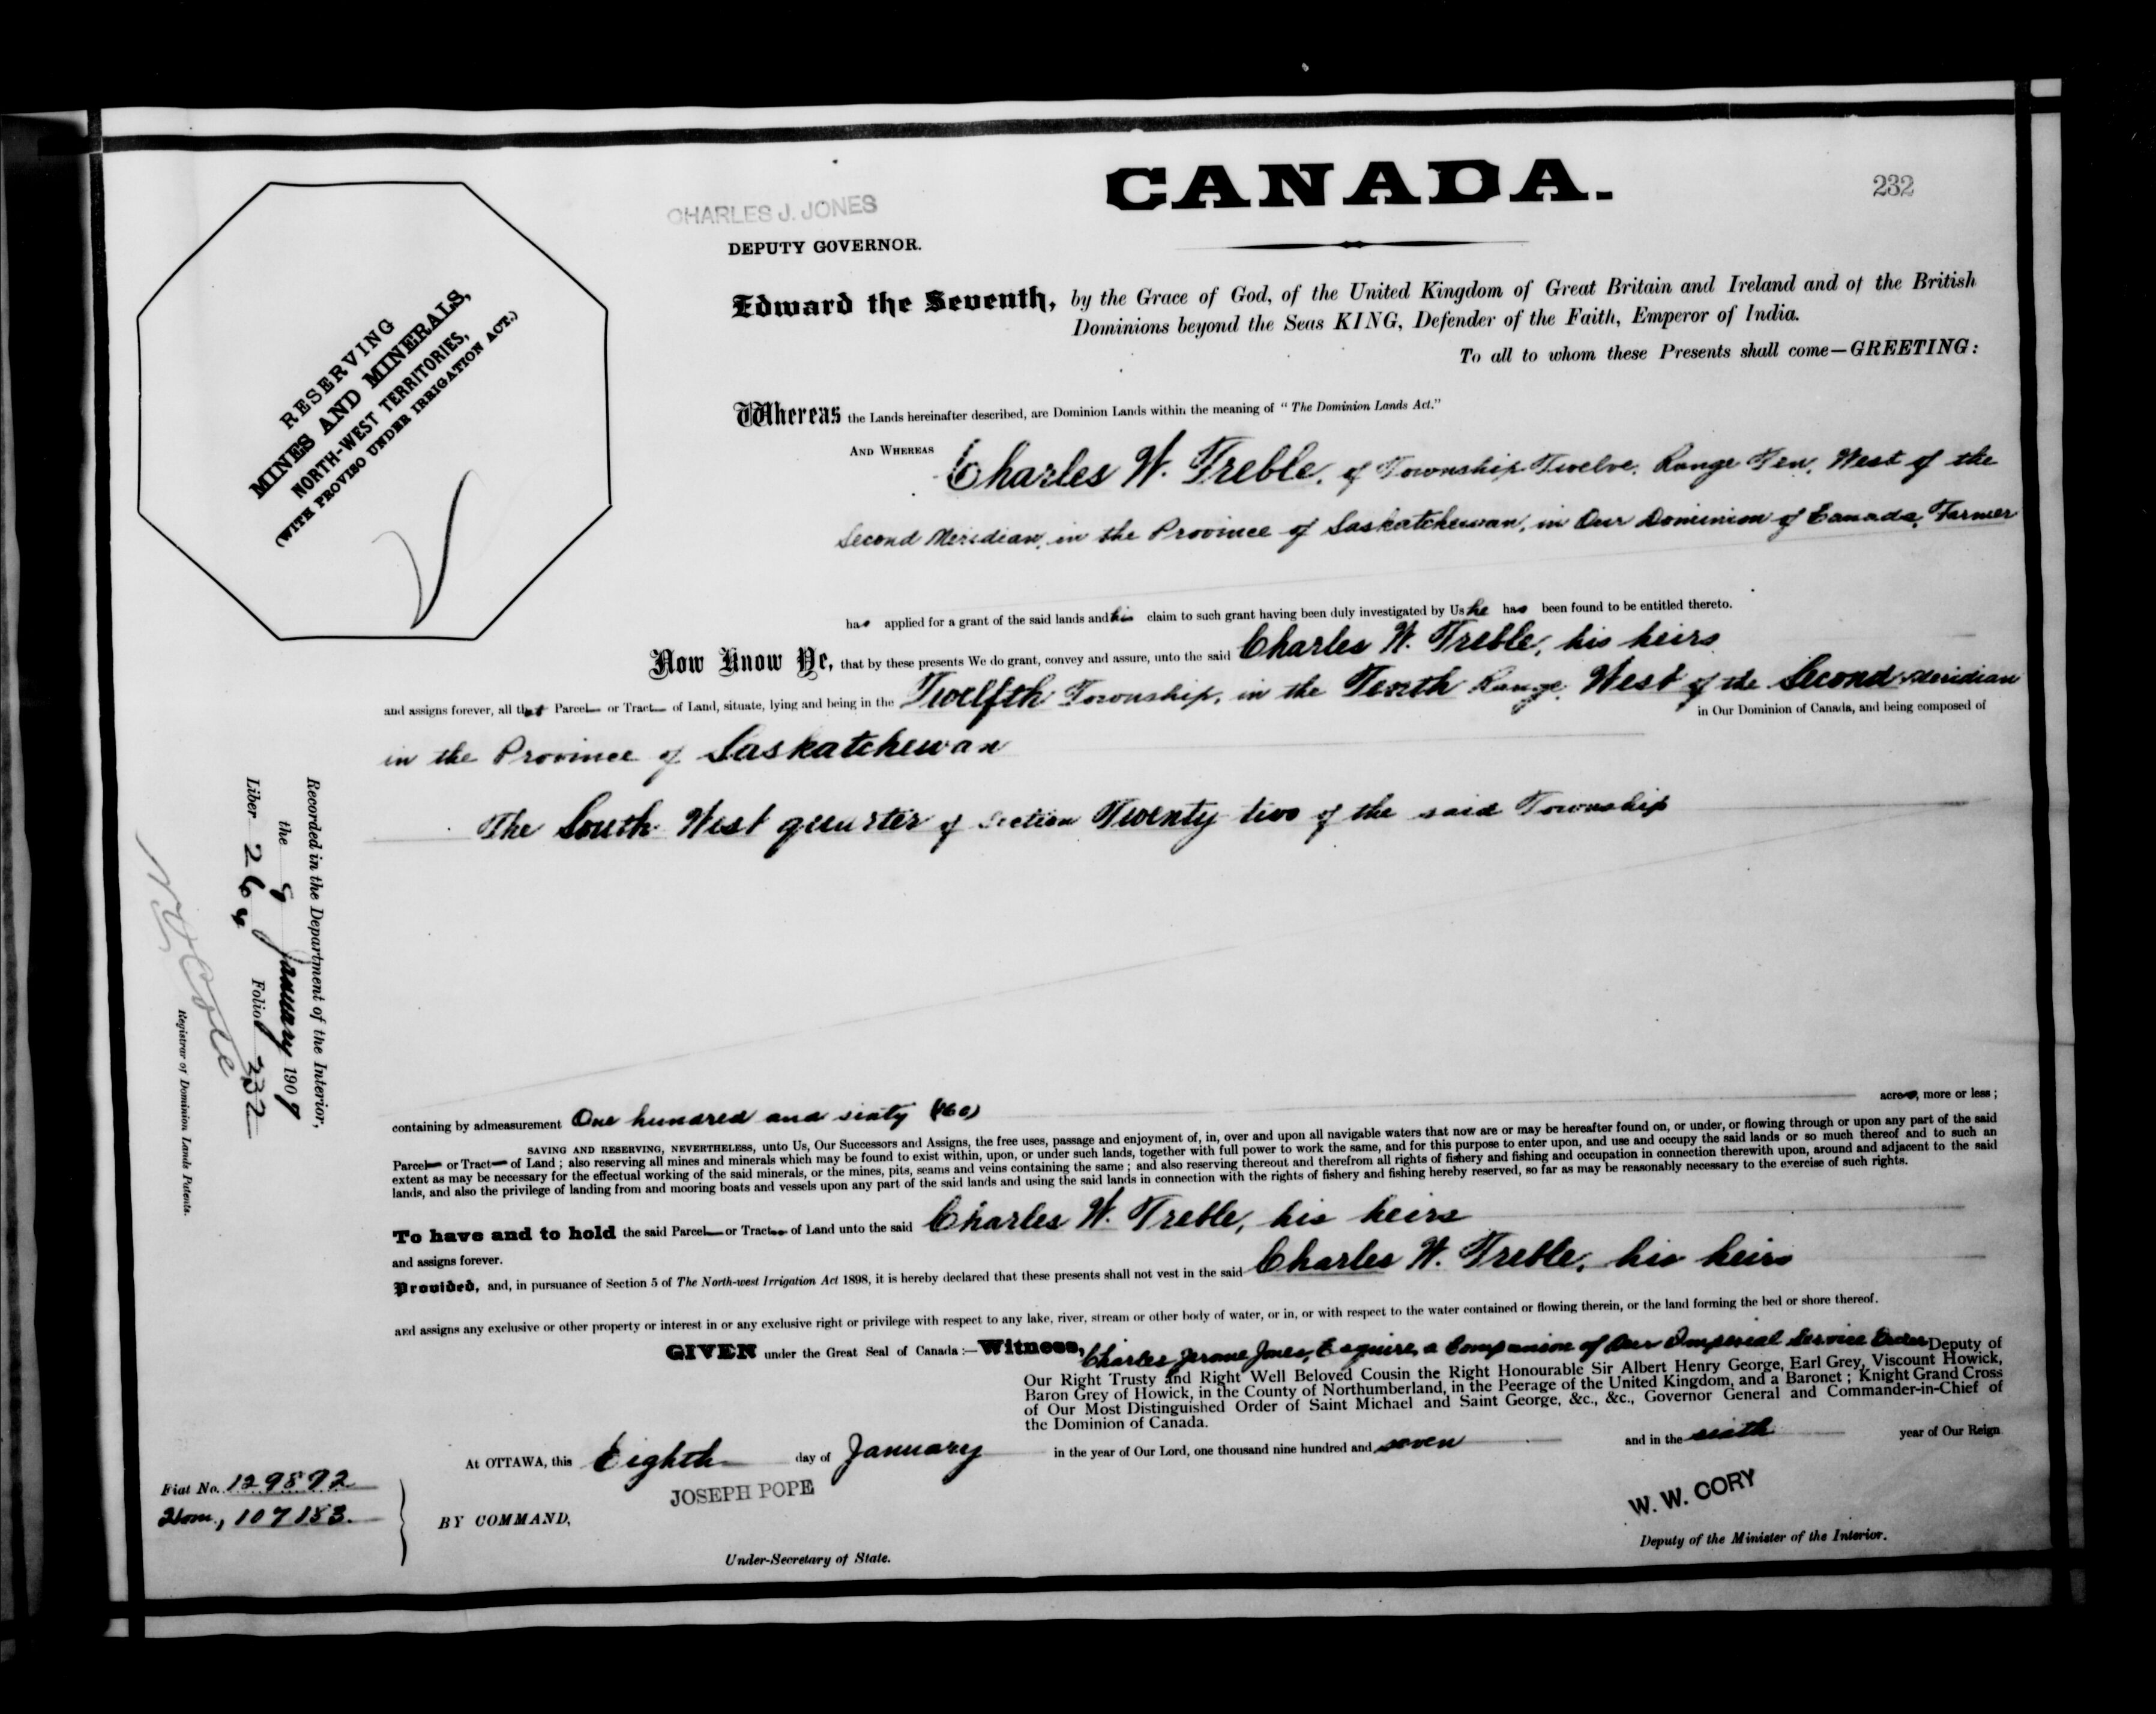 CANADA.
232
CHARLES J. JONES
DEPUTY GOVERNOR.
RESERVING
MINES AND MINERALS,
NORTH-WEST TERRITORIES,
(WITH PROVISO UNDER IRRIGATION ACT.)
Edward the Seventh, by the Grace of God, of the United Kingdom of Great Britain and Ireland and of the British
Dominions beyond the Seas KING, Defender of the Faith, Emperor of India.
To all to whom these Presents shall come—GREETING:
Whereas the Lands hereinafter described, are Dominion Lands within the meaning of "The Dominion Lands Act."
AND WHEREAS Charles W. Treble, of Township Twelve, Range Ten, West of the
Second Meridian, in the Province of Saskatchewan, in Our Dominion of Canada, Farmer
has applied for a grant of the said lands and his claim to such grant having been duly investigated by Us he has been found to be entitled thereto.
Now Know Ye, that by these presents We do grant, convey and assure, unto the said Charles W. Treble, his heirs
and assigns forever, all that Parcel or Tract of Land, situate, lying and being in the Twelfth Township, in the Tenth Range, West of the Second Meridian
in Our Dominion of Canada, and being composed of
in the Province of Saskatchewan
The South West quarter of Section Twenty two of the said Township
containing by admeasurement One hundred and sixty (160) acres, more or less;
SAVING AND RESERVING, NEVERTHELESS, unto Us, Our Successors and Assigns, the free uses, passage and enjoyment of, in, over and upon all navigable waters that now are or may be hereafter found on, or under, or flowing through or upon any part of the said
Parcel or Tract of Land; also reserving all mines and minerals which may be found to exist within, upon, or under such lands, together with full power to work the same, and for this purpose to enter upon, and use and occupy the said lands or so much thereof and to such an
extent as may be necessary for the effectual working of the said minerals, or the mines, pits, seams and veins containing the same; and also reserving thereout and therefrom all rights of fishery and fishing and occupation in connection therewith upon, around and adjacent to the said
lands, and also the privilege of landing from and mooring boats and vessels upon any part of the said lands and using the said lands in connection with the rights of fishery and fishing hereby reserved, so far as may be reasonably necessary to the exercise of such rights.
To have and to hold the said Parcel or Tract of Land unto the said Charles W. Treble, his heirs
and assigns forever.
Provided, and, in pursuance of Section 5 of The North-west Irrigation Act 1898, it is hereby declared that these presents shall not vest in the said Charles W. Treble, his heirs
and assigns any exclusive or other property or interest in or any exclusive right or privilege with respect to any lake, river, stream or other body of water, or in, or with respect to the water contained or flowing therein, or the land forming the bed or shore thereof.
GIVEN under the Great Seal of Canada:—Witness, Charles Jerome Jones, Esquire, a Companion of Our Imperial Service Order Deputy of
Our Right Trusty and Right Well Beloved Cousin the Right Honourable Sir Albert Henry George, Earl Grey, Viscount Howick,
Baron Grey of Howick, in the County of Northumberland, in the Peerage of the United Kingdom, and a Baronet; Knight Grand Cross
of Our Most Distinguished Order of Saint Michael and Saint George, &c., &c., Governor General and Commander-in-Chief of
the Dominion of Canada.
At OTTAWA, this Eighth day of January in the year of Our Lord, one thousand nine hundred and seven and in the sixth year of Our Reign
JOSEPH POPE
W. W. CORY
BY COMMAND,
Under-Secretary of State.
Deputy of the Minister of the Interior.
Fiat No. 129872
Hom., 107183.
Recorded in the Department of the Interior,
the 8 January 1907
Liber 264 Folio 232
Cote
Registrar of Dominion Lands Patents.